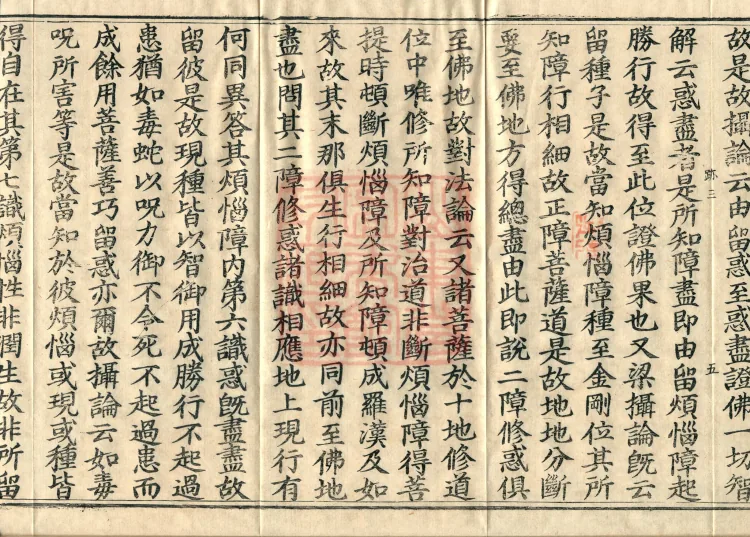 故是故攝論云由留惑至惑盡證佛一切智
跡三
五
解云惑盡者是所知障盡即由留煩惱障起
勝行故得至此位證佛果也又梁攝論旣云
留種子是故當知煩惱障種至金剛位其所
知障行相細故正障菩薩道是故地地分斷
要至佛地方得總盡由此即說二障修惑俱
至佛地故對法論云又諸菩薩於十地修道
位中唯修所知障對治道非斷煩惱障得菩
提時頓斷煩惱障及所知障頓成羅漢及如
來故其末那俱生行相細故亦同前至佛地
盡也問其二障修惑諸識相應地上現行有
何同異答其煩惱障內第六識惑旣盡盡故
留彼是故現種皆以智御用成勝行不起過
患猶如毒蛇以呪力御不令死不起過患而
成餘用菩薩善巧留惑亦爾故攝論云如毒
呪所害等是故當知於彼煩惱或現或種皆
得自在其第七識煩惱性非潤生故非所留